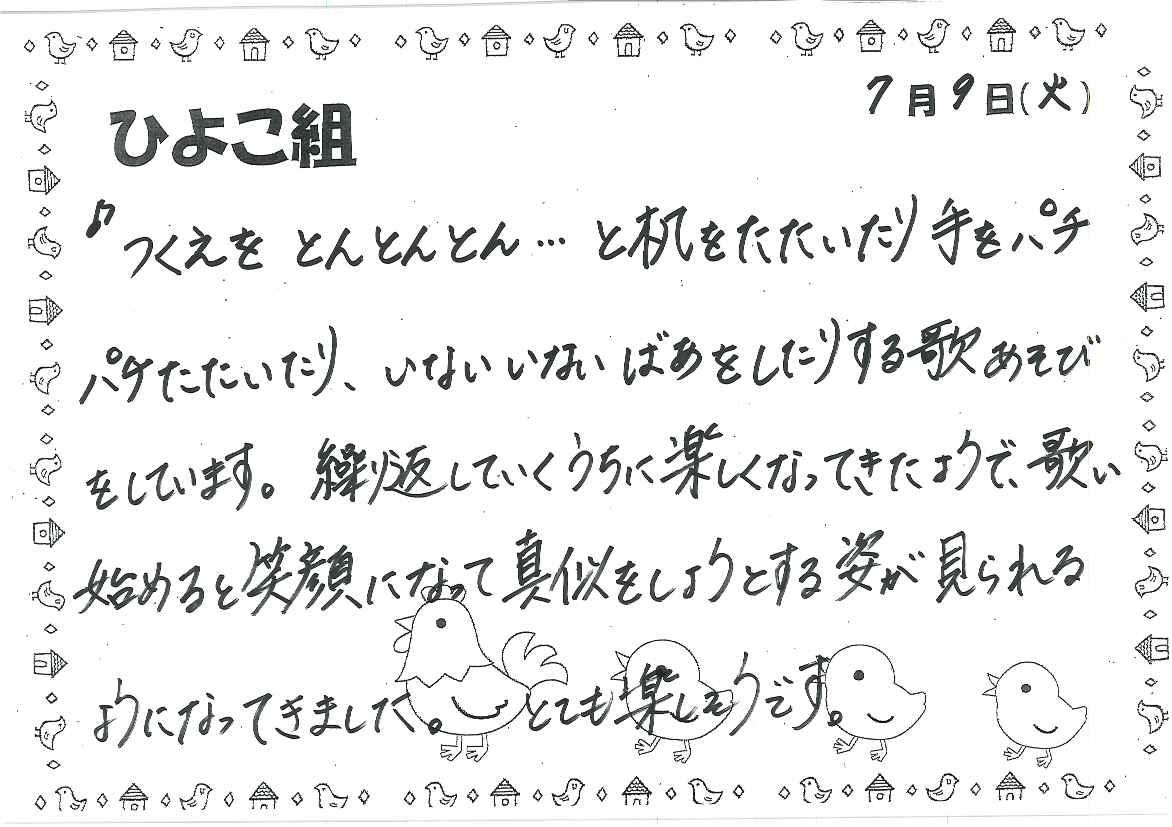 7月9日(火)
ひよこ組
♪つくえを とんとんとん… と机をたたいたり手をパチ
パチたたいたり、いないいないばあをしたりする歌あそび
をしています。繰り返していくうちに楽しくなってきたようで、歌い
始めると笑顔になって真似をしようとする姿が見られる
ようになってきました。とても楽しそうです。